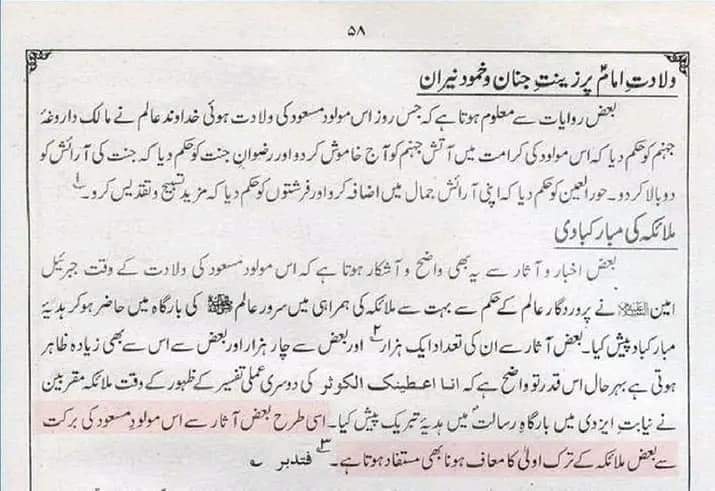 ۵۸
ولادتِ امامؑ پر زینتِ جنان و خمودِ نیران
بعض روایات سے معلوم ہوتا ہے کہ جس روز اس مولود مسعود کی ولادت ہوئی خداوند عالم نے مالک داروغۂ
جہنم کو حکم دیا کہ اس مولود کی کرامت میں آتش جہنم کو آج خاموش کر دو اور رضوانِ جنت کو حکم دیا کہ جنت کی آرائش کو
دو بالا کر دو۔ حور العین کو حکم دیا کہ اپنی آرائش جمال میں اضافہ کرو اور فرشتوں کو حکم دیا کہ مزید تسبیح و تقدیس کرو۔ ۱
ملائکہ کی مبارکبادی
بعض اخبار و آثار سے یہ بھی واضح و آشکار ہوتا ہے کہ اس مولود مسعود کی ولادت کے وقت جبرئیل
امین علیہ السلام نے پروردگار عالم کے حکم سے بہت سے ملائکہ کی ہمراہی میں سرور عالم ﷺ کی بارگاہ میں حاضر ہو کر ہدیۂ
مبارکباد پیش کیا۔ بعض آثار سے ان کی تعداد ایک ہزار ۲ اور بعض سے چار ہزار اور بعض سے اس سے بھی زیادہ ظاہر
ہوتی ہے بہر حال اس قدر تو واضح ہے کہ انا اعطینک الکوثر کی دوسری عملی تفسیر کے ظہور کے وقت ملائکہ مقربین
نے نیابت ایزدی میں بارگاہِ رسالت میں ہدیۂ تبریک پیش کیا۔ اسی طرح بعض آثار سے اس مولودِ مسعود کی برکت
سے بعض ملائکہ کے ترک اولیٰ کا معاف ہونا بھی مستفاد ہوتا ہے۔ ۳ فتدبر